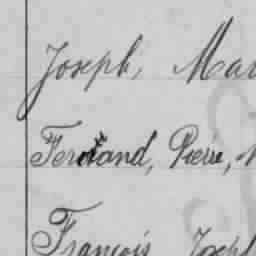 Joseph, Mar
Ferdinand, Pierre, M
François Joseph